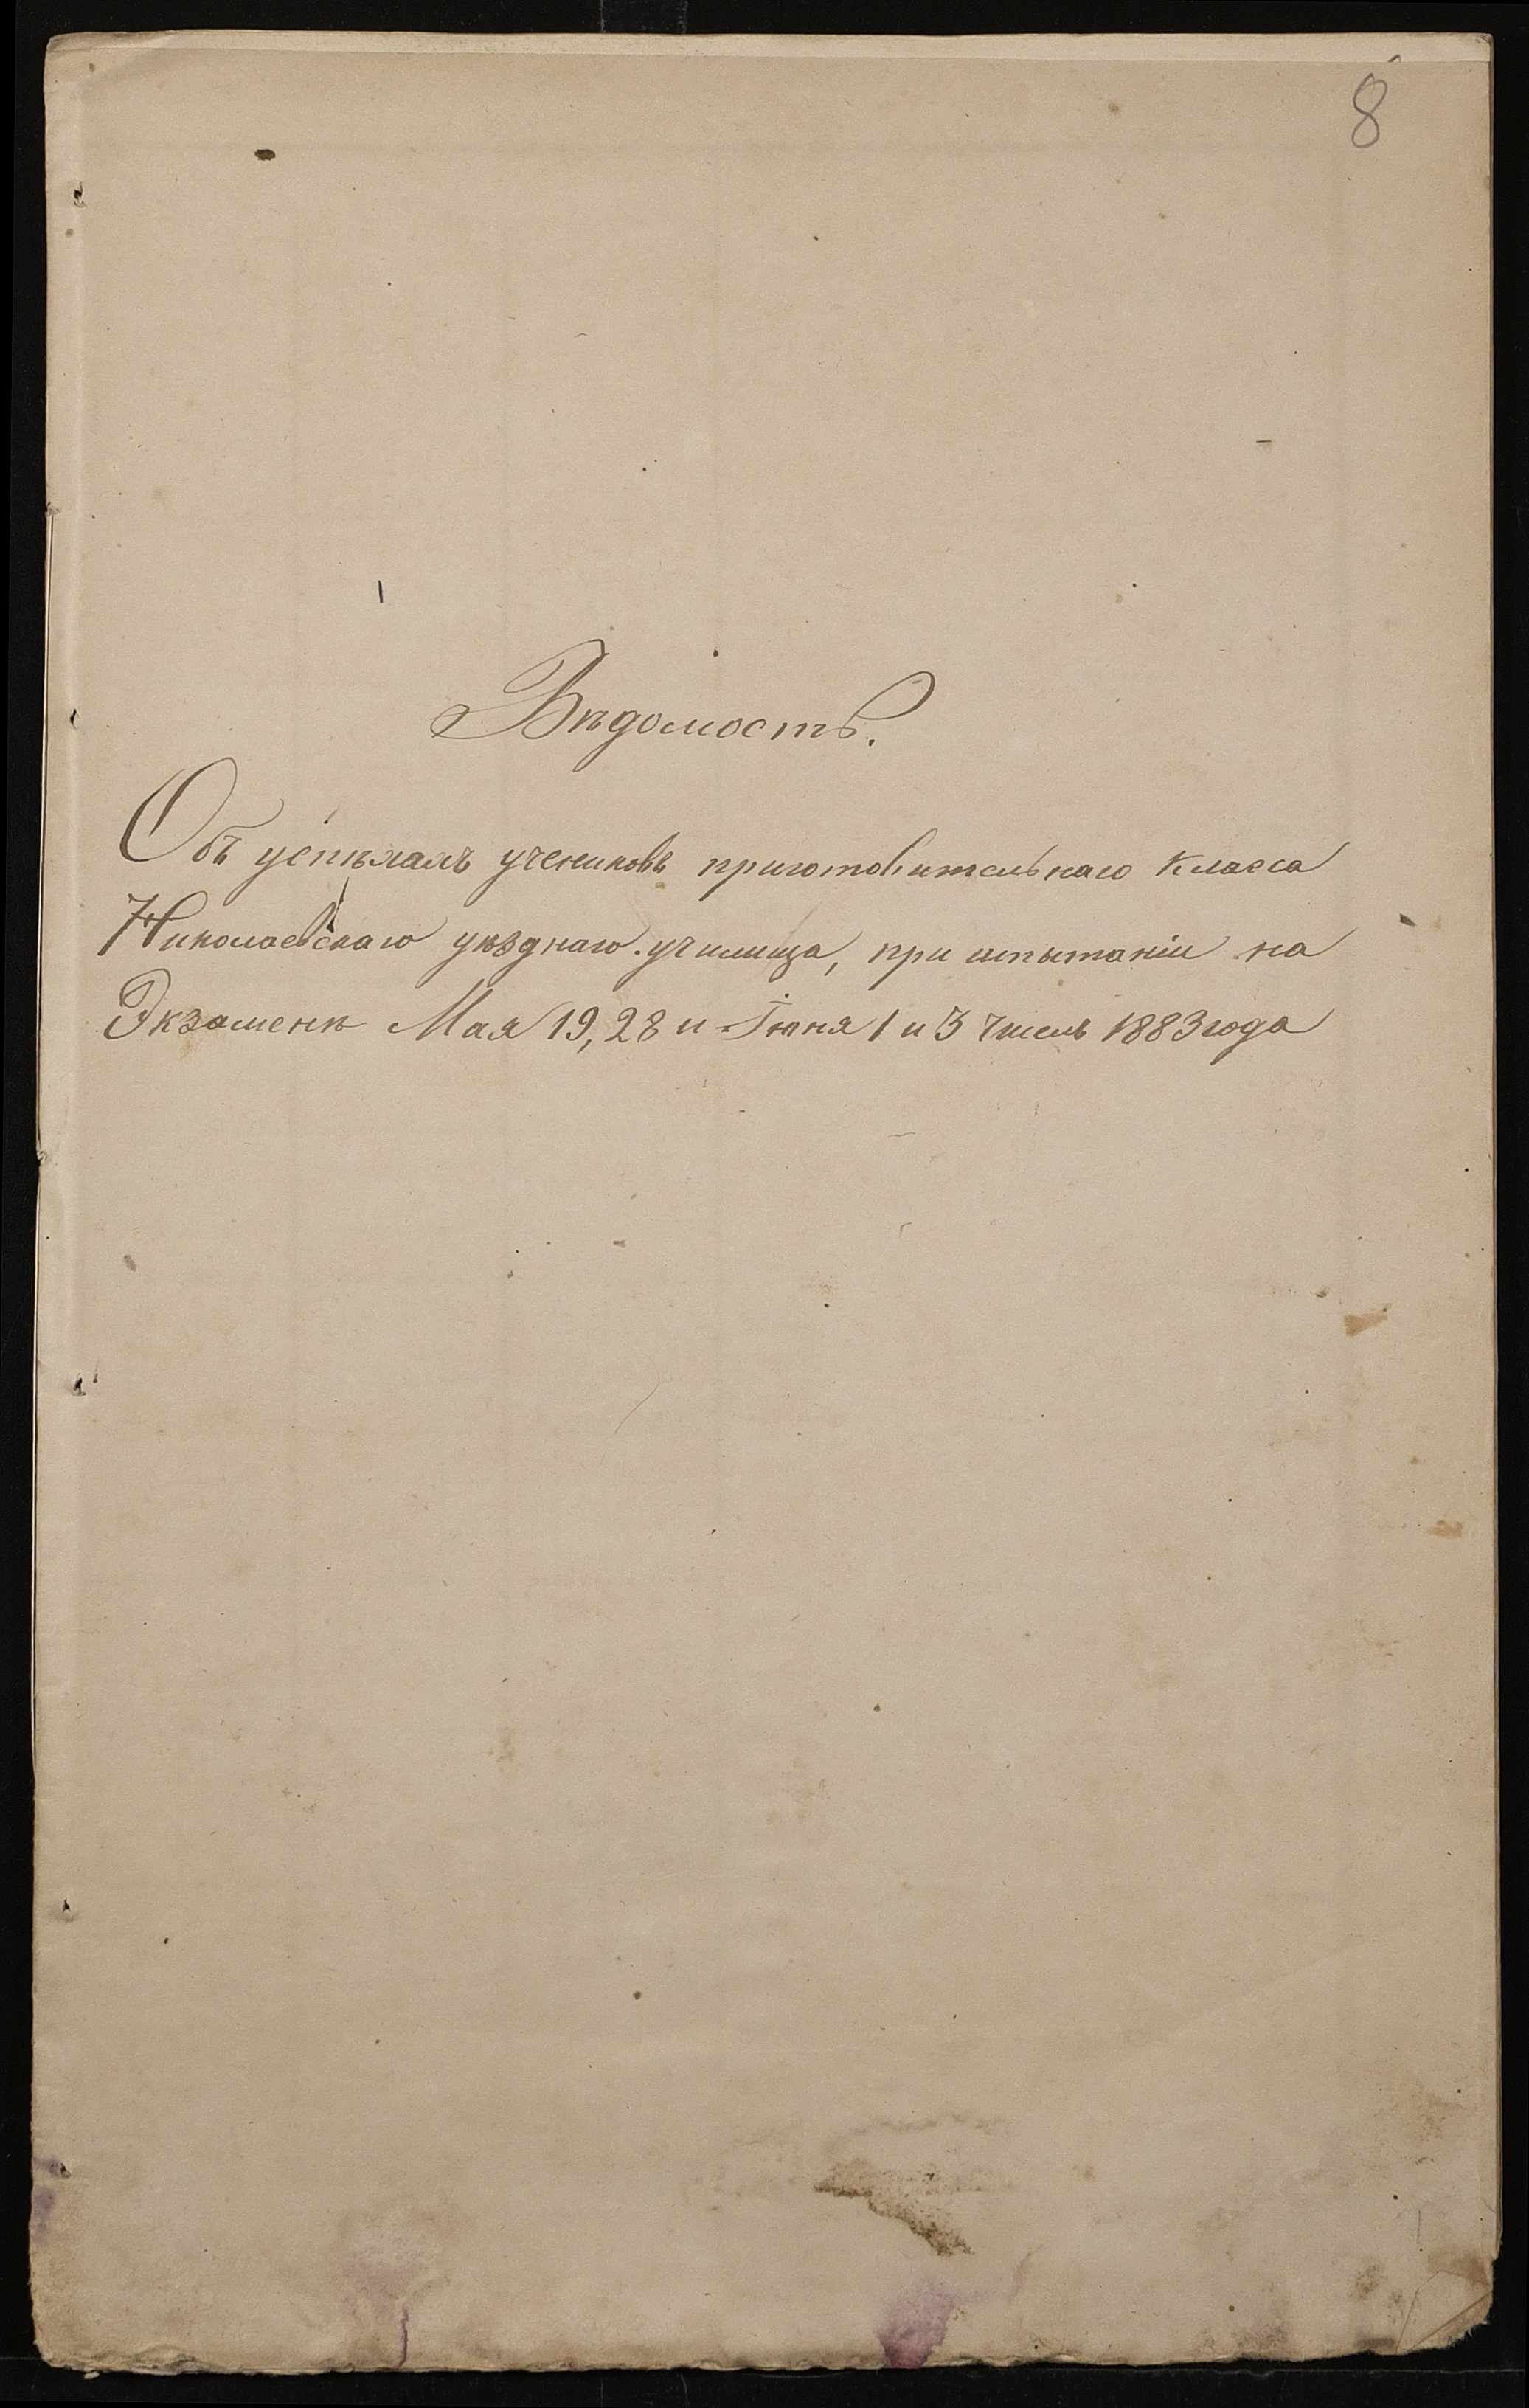 8
Вѣдомость.
Объ успѣхахъ учениковъ приготовительнаго класса
Николаевскаго уѣзднаго училища, при испытаніи на
Экзаменѣ Мая 19, 28 и Іюня 1 и 3 числъ 1883 года